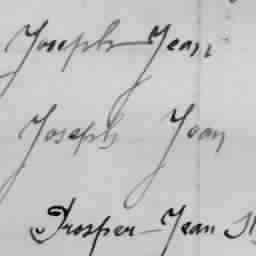 Joseph Jean
Joseph Jean
Prosper Jean